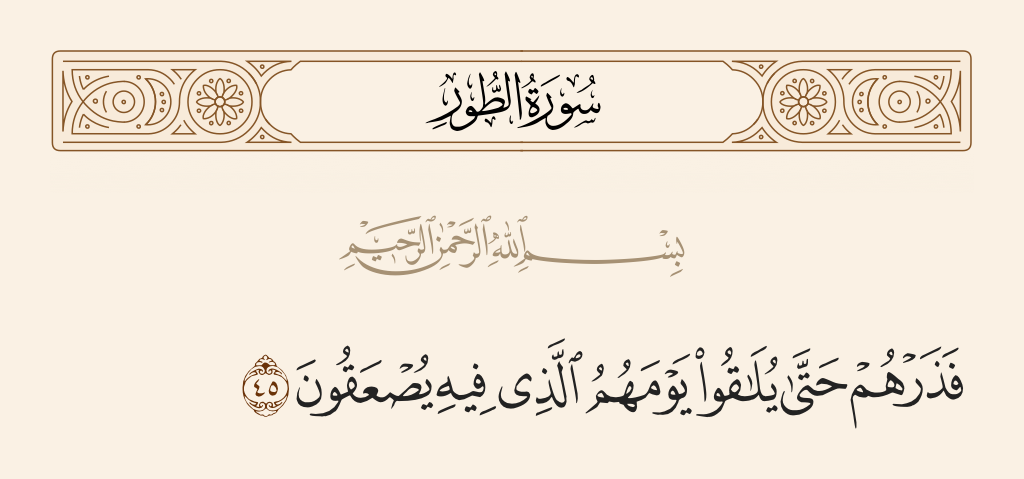 سُورَةُ الطُّورِ
بِسْمِ ٱللَّهِ ٱلرَّحْمَٰنِ ٱلرَّحِيمِ
فَذَرْهُمْ حَتَّىٰ يُلَٰقُوا۟ يَوْمَهُمُ ٱلَّذِى فِيهِ يُصْعَقُونَ ٤٥